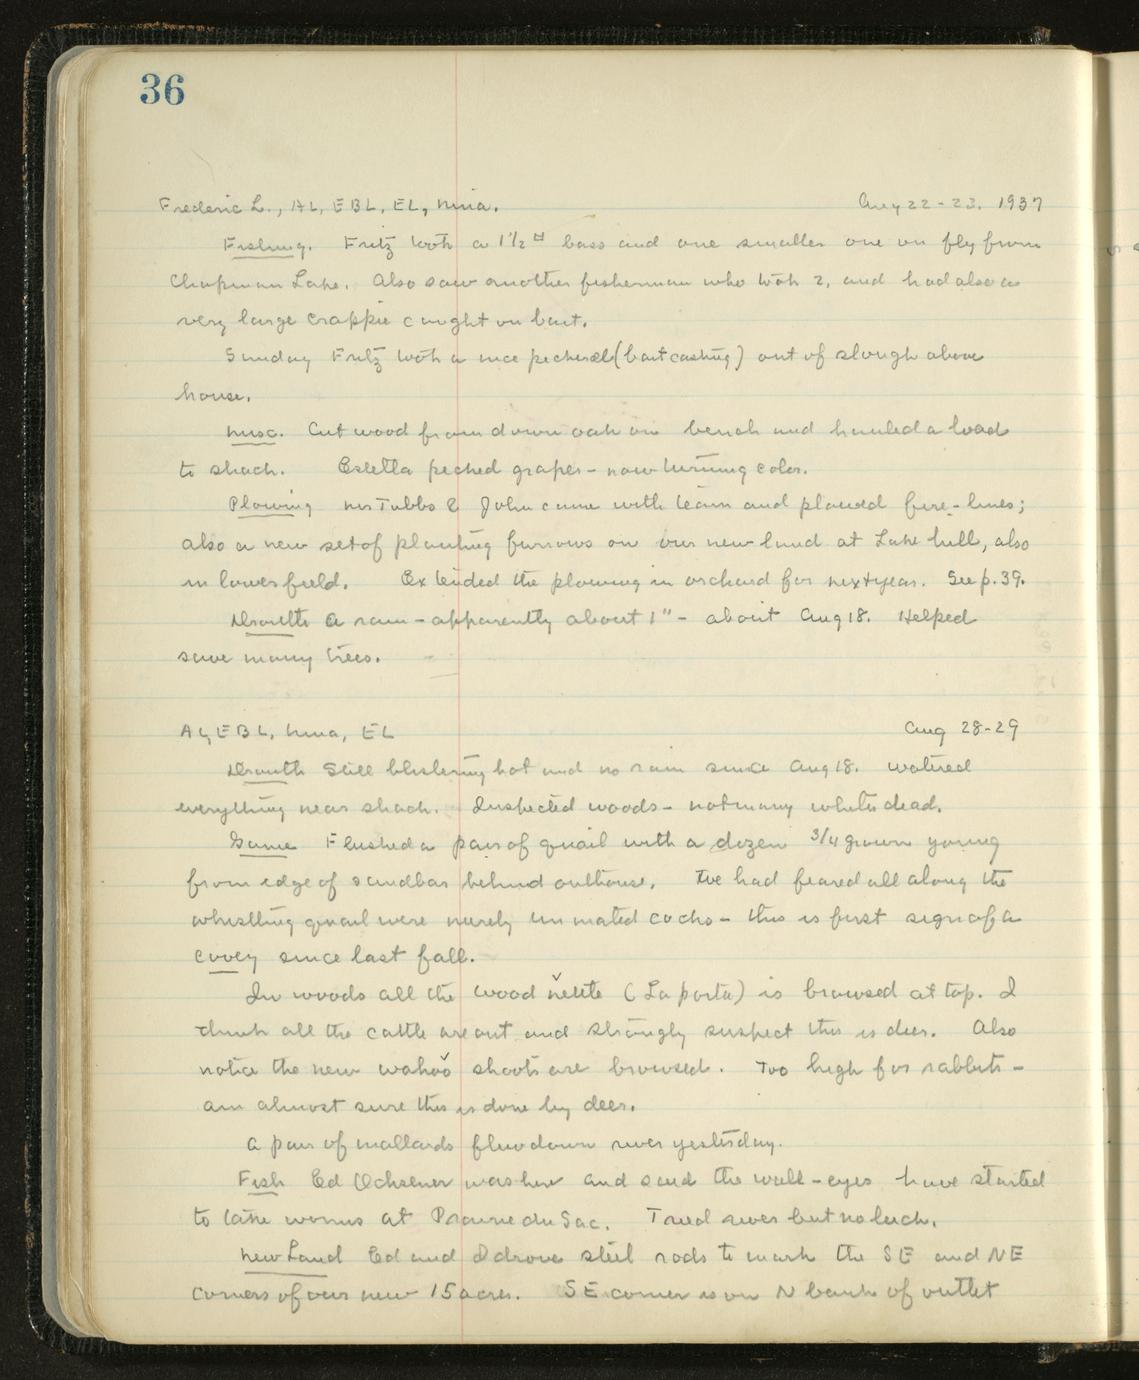 36
Frederic L., AL, EBL, EL, Nina. Aug 22-23. 1937
Fishing. Fritz took a 1½ # bass and one smaller one on fly from
Chapman Lake. Also saw another fisherman who took 2, and had also a
very large crappie caught on bait.
Sunday Fritz took a nice pickerel (bait casting) out of slough above
house.
Misc. Cut wood from down oak on bench and hauled a load
to shack. Estella picked grapes - now turning color.
Plowing Mr Tubbs & John came with team and plowed fire-lines;
also a new set of planting furrows on our new land at Lake hill, also
in lower field. Extended the plowing in orchard for next year. See p. 39.
Drouth A rain - apparently about 1" - about Aug 18. Helped
save many trees.
AL, EBL, Nina, EL Aug 28-29
Drouth Still blistering hot and no rain since Aug 18. Watered
everything near shack. Inspected woods - not many whites dead.
Game Flushed a pair of quail with a dozen 3/4 grown young
from edge of sandbar behind outhouse. We had feared all along the
whistling quail were merely unmated cocks - this is first sign of a
covey since last fall.
In woods all the wood nettle (Laporta) is browsed at top. I
think all the cattle are out and strongly suspect this is deer. Also
notice the new wahoo shoots are browsed. Too high for rabbits -
am almost sure this is done by deer.
A pair of mallards flew down river yesterday.
Fish Ed Ochsener was here and said the wall-eyes have started
to take worms at Prairie du Sac. Tried river but no luck.
New Land Ed and I drove steel rods to mark the SE and NE
corners of our new 15 acres. SE corner is on N bank of outlet